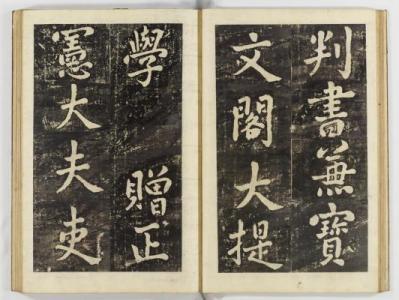 判書兼寶
文閣大提
學 贈正
憲大夫吏